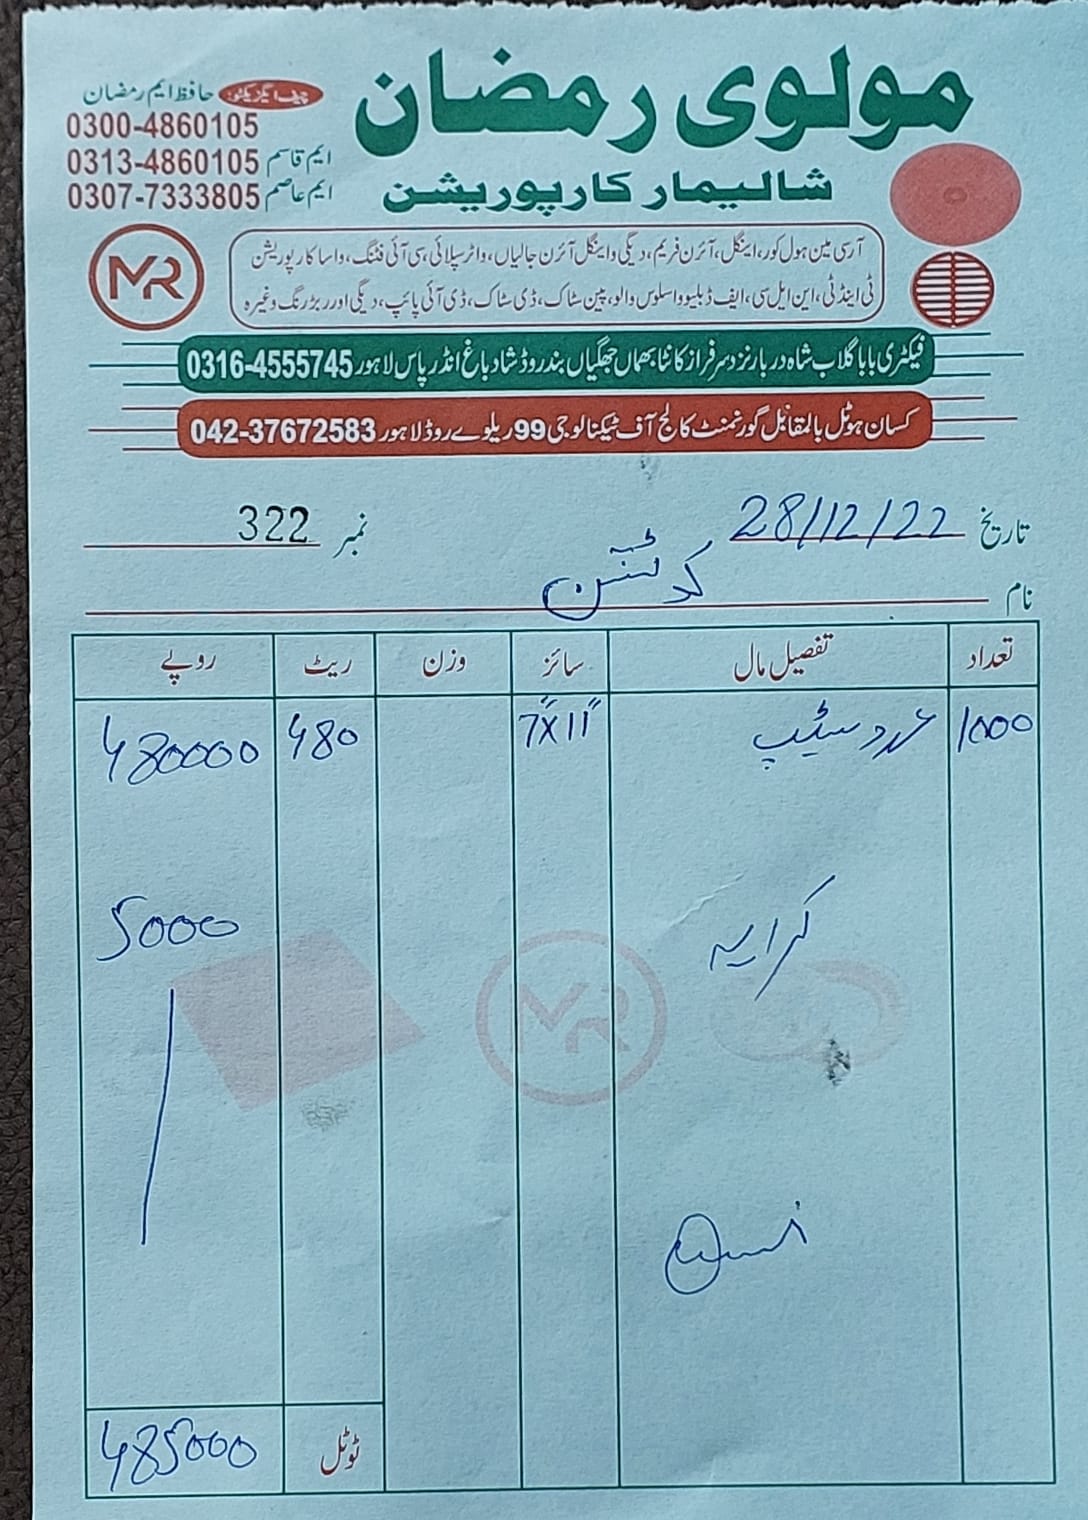 مولوی رمضان
شالیمار کارپوریشن
چیف ایگزیکٹو: حافظ ایم رمضان
0300-4860105
ایم قاسم 0313-4860105
ایم عاصم 0307-7333805
MR
آر سی مین ہول کور، اینگل، آئرن فریم، دیگی و اینگل آئرن جالیاں، واٹر سپلائی، سی آئی فٹنگ، واسا کارپوریشن
ٹی اینڈ ٹی، این ایل سی، ایف ڈبلیو او سلوس والو، پین سٹاک، ڈی سٹاک، ڈی آئی پائپ، دیگی اور ربڑ رنگ وغیرہ
فیکٹری بابا گلاب شاہ دربار نزد سرفراز کانٹا بھماں جھگیاں بند روڈ شاد باغ انڈر پاس لاہور 0316-4555745
کسان ہوٹل بالمقابل گورنمنٹ کالج آف ٹیکنالوجی 99 ریلوے روڈ لاہور 042-37672583
تاریخ 28/12/22 نمبر 322
نام
تعداد تفصیل مال سائز وزن ریٹ روپے
1000 عدد سٹیپ 7"x11" 480 480000
کرایہ 5000
MR
ٹوٹل 485000